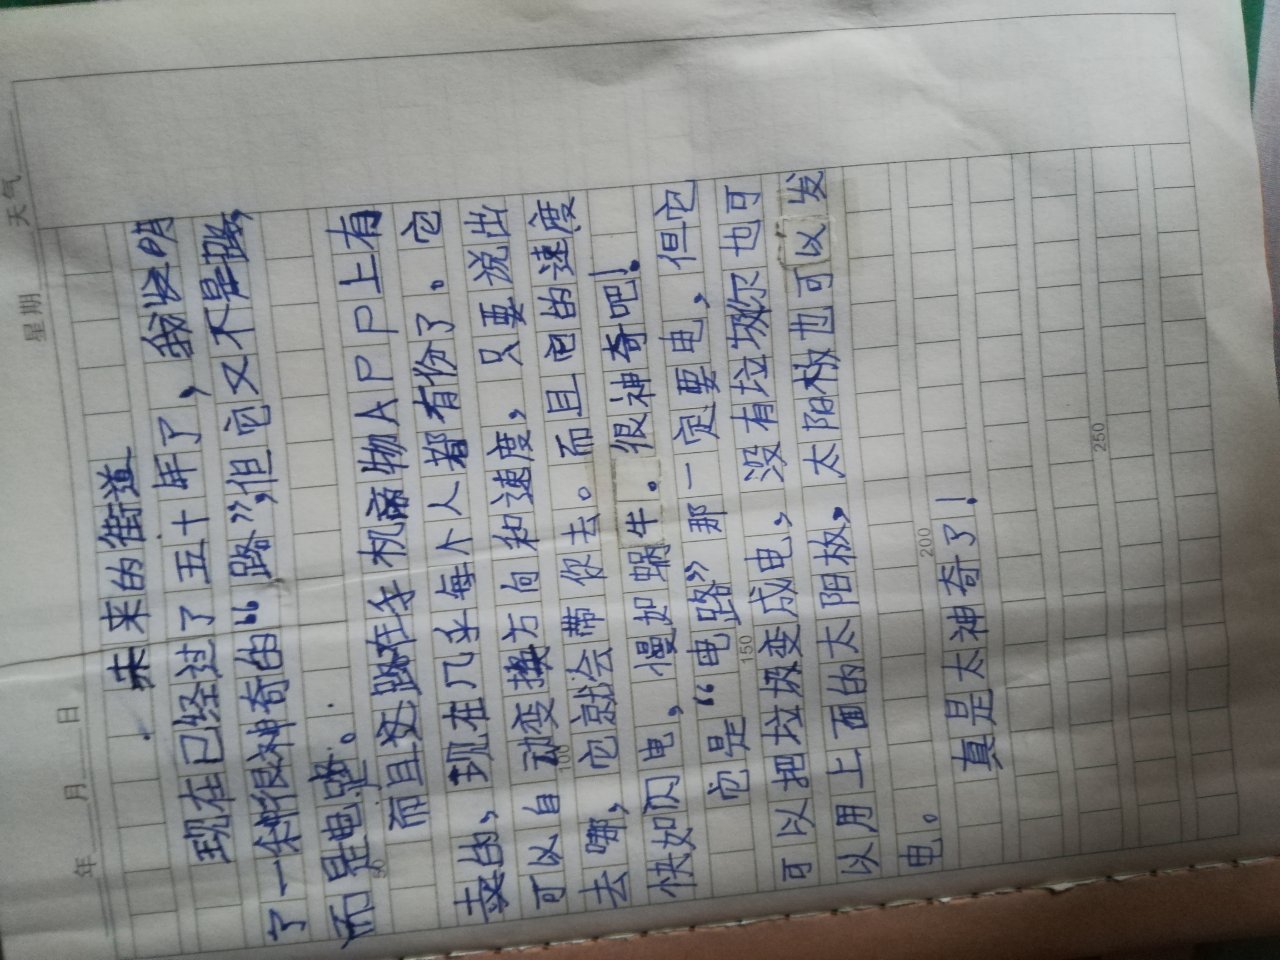 年 月 日 星期 天气
未来的街道
现在已经过了五十年了，我发明
了一条很神奇的“路”，但它又不是路，
而是电路。
而且这路在手机商物APP上有
卖的，现在几乎每个人都有份了。它
可以自动变换方向和速度，只要说出
去哪，它就会带你去。而且它的速度
快如闪电，慢如蜗牛。很神奇吧！
它是“电路”那一定要电，但它
可以把垃圾变成电，没有垃圾你也可
以用上面的太阳板，太阳板也可以发
电。
真是太神奇了！
50
100
150
200
250